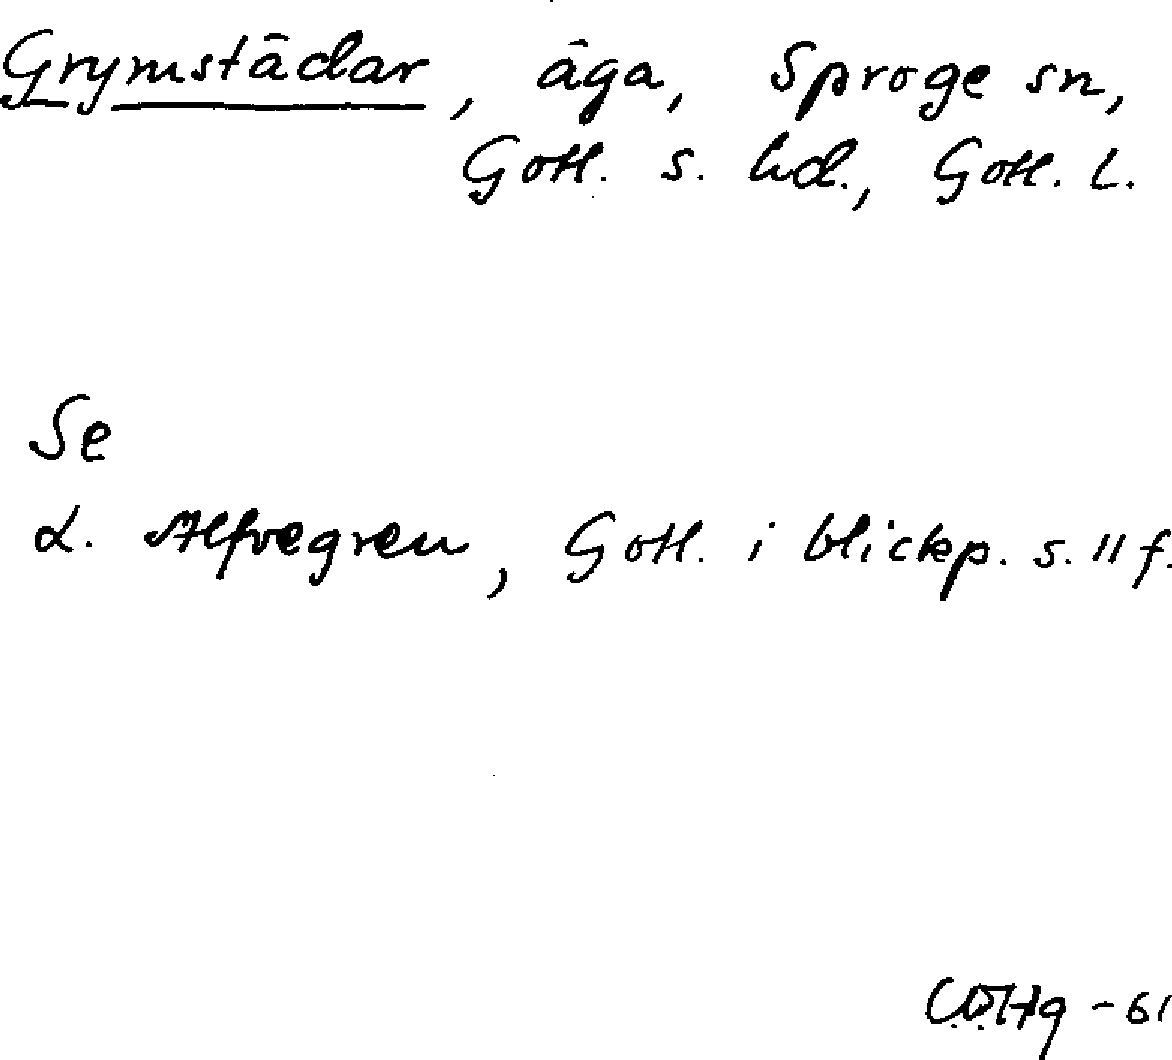 Grymstädar, äga, Sproge sn,
Gotl. s. hd., Gotl. l.
Se
L. Alfvegren, Gotl. i blickp. s. 11 f.
-61